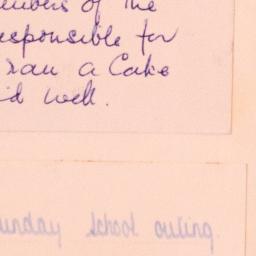 of the
responsible for
ran a Cake
did well.
Sunday School outing.